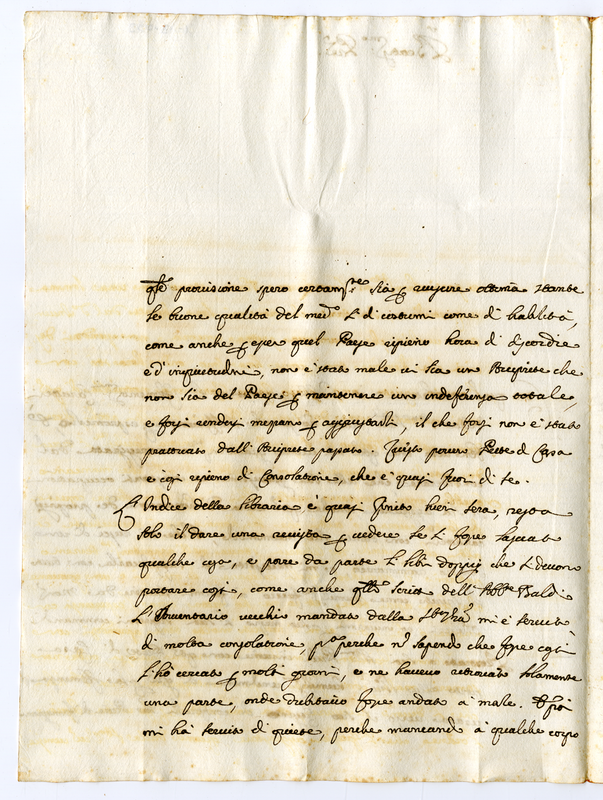 provisione spero certam.te sia p riuscire ottima stante
le buone qualità del med.o si di costumi come di habilità,
come anche p esser quel Paese ripieno hora di discordie
e d'inquietudini, non è stato male vi sia un Arciprete che
non sia del Paese p mantenere un' indeferenza totale,
e farsi render mezzano p aggiustarli, il che forsi non è stato
praticato dall'Arciprete passato. povero Prete di Casa
è così ripieno di Consolatione, che è quasi fuori di se.
L'Indice della libraria è quasi finito hieri sera, resta
solo il dare una revista p vedere se si fosse lasciat
qualche cosa, e porre da parte li libri doppij che si devono
portare costì, come anche scritti dell'Abb.e Baldi
L'Inventario vecchio mandato dalla mi è servito
di molta consolatione, p.o perche n.n sapendo che fosse costì
l'hò cercato p molti giorni, e ne havevo ritrovato solamente
una parte, onde dubitavo fosse andato a male.
mi hà servito di quiete, perche mancand à qualche corpo